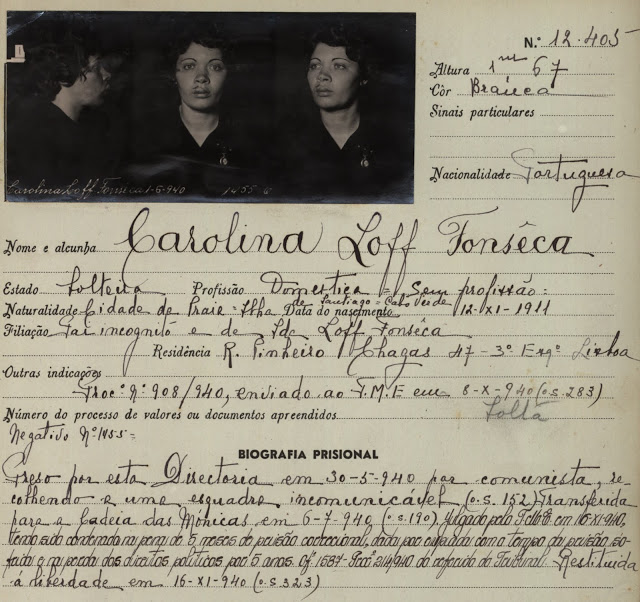 N.º 12.405
Altura 1m 67
Côr Branca
Sinais particulares
Nacionalidade Portuguesa
Carolina Loff Fonseca 1-6-940 1455
Nome e alcunha Carolina Loff Fonsêca
Estado Solteira Profissão Domestica = Sem profissão =
de Santiago = Cabo Verde
Naturalidade Cidade da Praia - Ilha Data do nascimento 12-XI-1911
Filiação Pai incognito e de Loff Fonsêca
Residência R. Pinheiro Chagas 47-3º Esqº Lisboa
Outras indicações
Procº Nº 908/940, enviado ao T.M.E em 8-X-940 (o.s.283)
Solta
Número do processo de valores ou documentos apreendidos
Negativo Nº 1455=
BIOGRAFIA PRISIONAL
Preso por esta Directoria em 30-5-940 por comunista, re-
colhendo a uma esquadra, incomunicável (o.s.152) Transferida
para a Cadeia das Mónicas em 6-7-940 (o.s.190) Julgada pelo em 16-XI-940,
tendo sido condenada na pena de 5 meses de prisão correccional, dada por expiada com o tempo da prisão so-
frida e na perda dos direitos politicos por 5 anos. Of. 1587- Procº 214/940 do Tribunal. Restituida
á liberdade em 16-XI-940 (o.s.323)